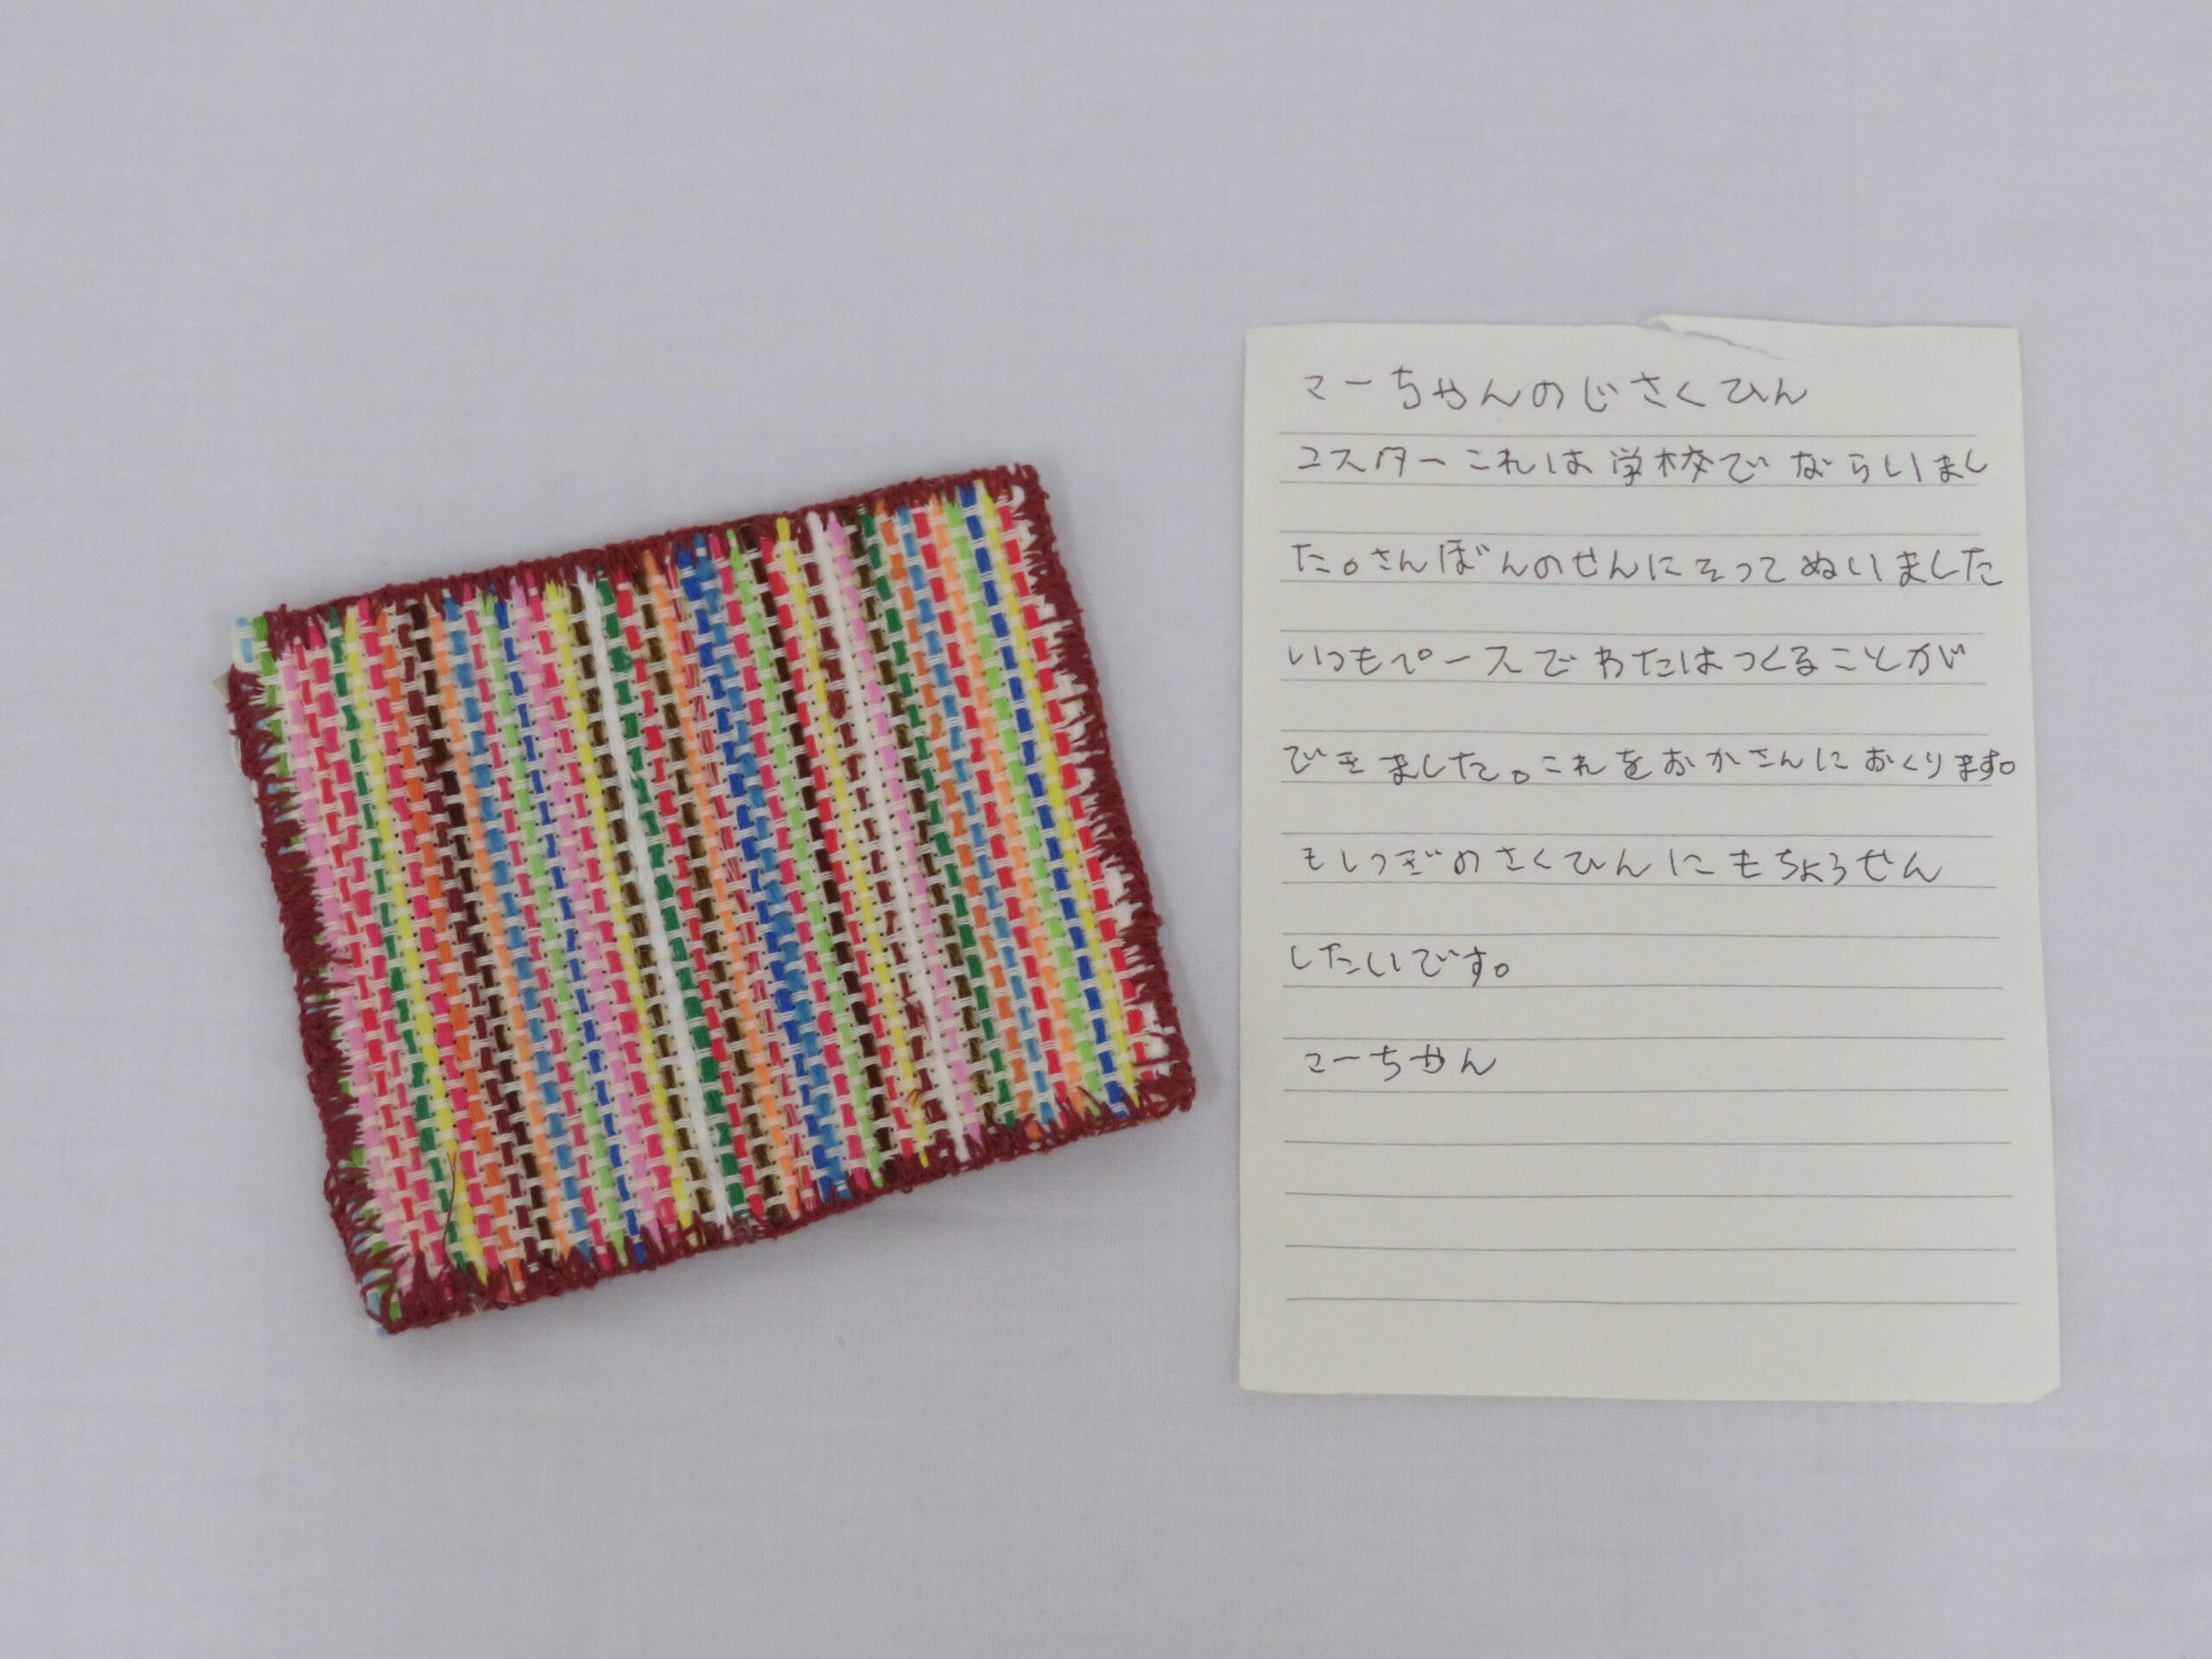 マーちゃんのじさくひん
コスターこれは学校でならいまし
た。さんぼんのせんにそってぬいました
いつもペースでわたはつくることが
できました。これをおかさんにおくります。
もしつぎのさくひんにもちょうせん
したいです。
マーちゃん